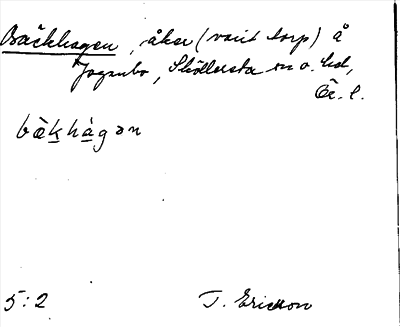 Bäckhagen, åker (varit torp) å
Jogsnbo, Sköllersta sn o. hd,
Ör. l.
bäkhàgən
5:2
T. Ericsson